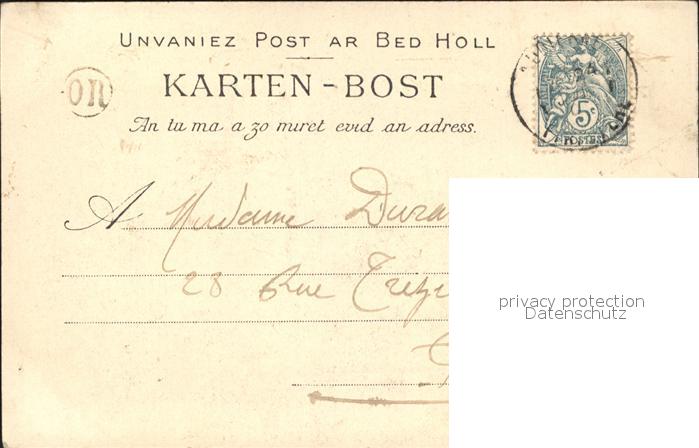 UNVANIEZ POST AR BED HOLL
OR
KARTEN-BOST
An tu ma a zo miret evid an adress.
5c
POSTES
A Madame Dura
28 Rue
privacy protection
Datenschutz